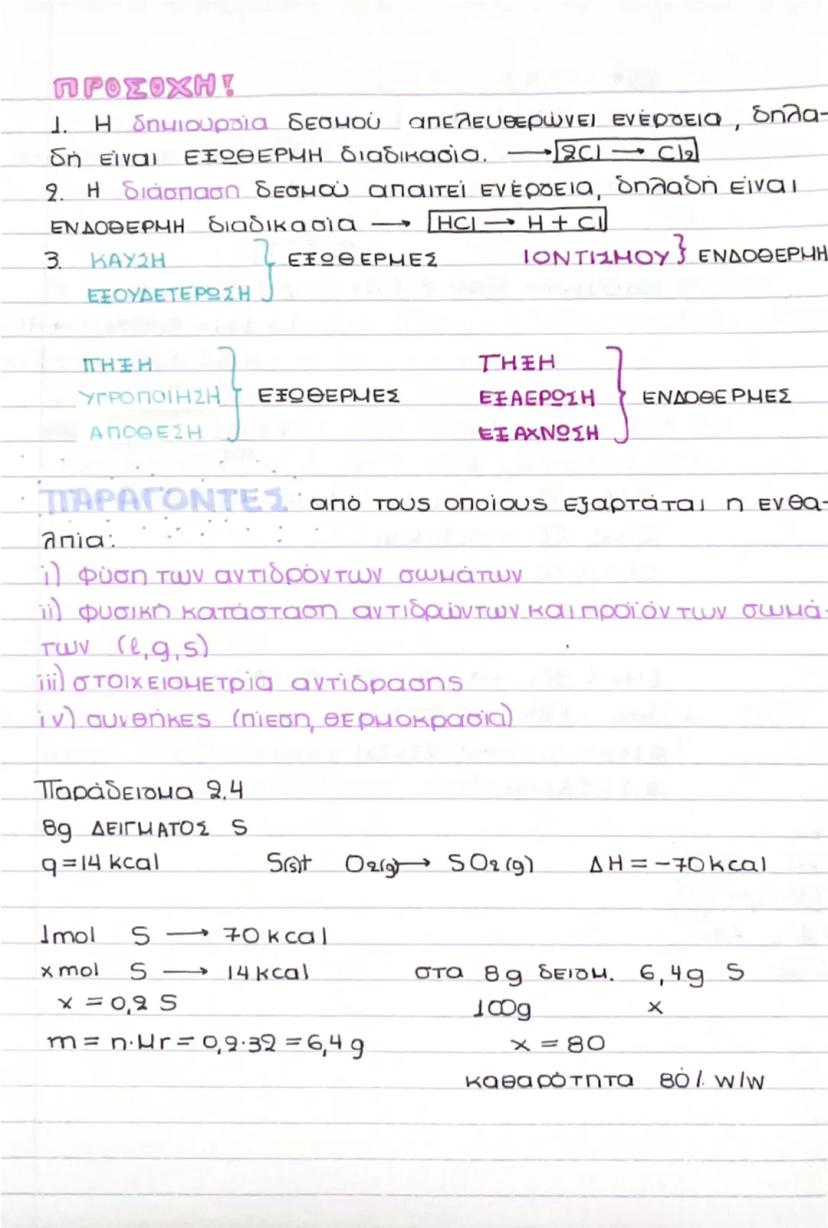 ΠΡΟΣΟΧΗ!
1. Η δημιουργία δεσμού απελευθερώνει ενέργεια, δηλα-
δή είναι ΕΞΩΘΕΡΜΗ διαδικασία. → 2Cl → Cl2
2. Η διάσπαση δεσμού απαιτεί ενέργεια, δηλαδή είναι
ΕΝΔΟΘΕΡΜΗ διαδικασία → HCl → H + Cl
3. ΚΑΥΣΗ } ΕΞΩΘΕΡΜΕΣ ΙΟΝΤΙΣΜΟΥ } ΕΝΔΟΘΕΡΜΗ
ΕΞΟΥΔΕΤΕΡΩΣΗ
ΠΗΞΗ ΤΗΞΗ
ΥΓΡΟΠΟΙΗΣΗ } ΕΞΩΘΕΡΜΕΣ ΕΞΑΕΡΩΣΗ } ΕΝΔΟΘΕΡΜΕΣ
ΑΠΟΘΕΣΗ ΕΞΑΧΝΩΣΗ
ΠΑΡΑΓΟΝΤΕΣ από τους οποίους εξαρτάται η ενθα-
λπία:
i) φύση των αντιδρόντων σωμάτων
ii) φυσική κατάσταση αντιδρώντων και προϊόντων σωμά-
των (l, g, s)
iii) στοιχειομετρία αντίδρασης
iv) συνθήκες (πίεση, θερμοκρασία)
Παράδειγμα 2.4
8g ΔΕΙΓΜΑΤΟΣ S
q = 14 kcal S(s)+ O2(g) → SO2(g) ΔH = -70kcal
1mol S → 70 kcal
x mol S → 14 kcal στα 8g δειγμ. 6,4g S
x = 0,2 S 100g x
m = n·Mr = 0,2·32 = 6,4 g x = 80
καθαρότητα 80% w/w